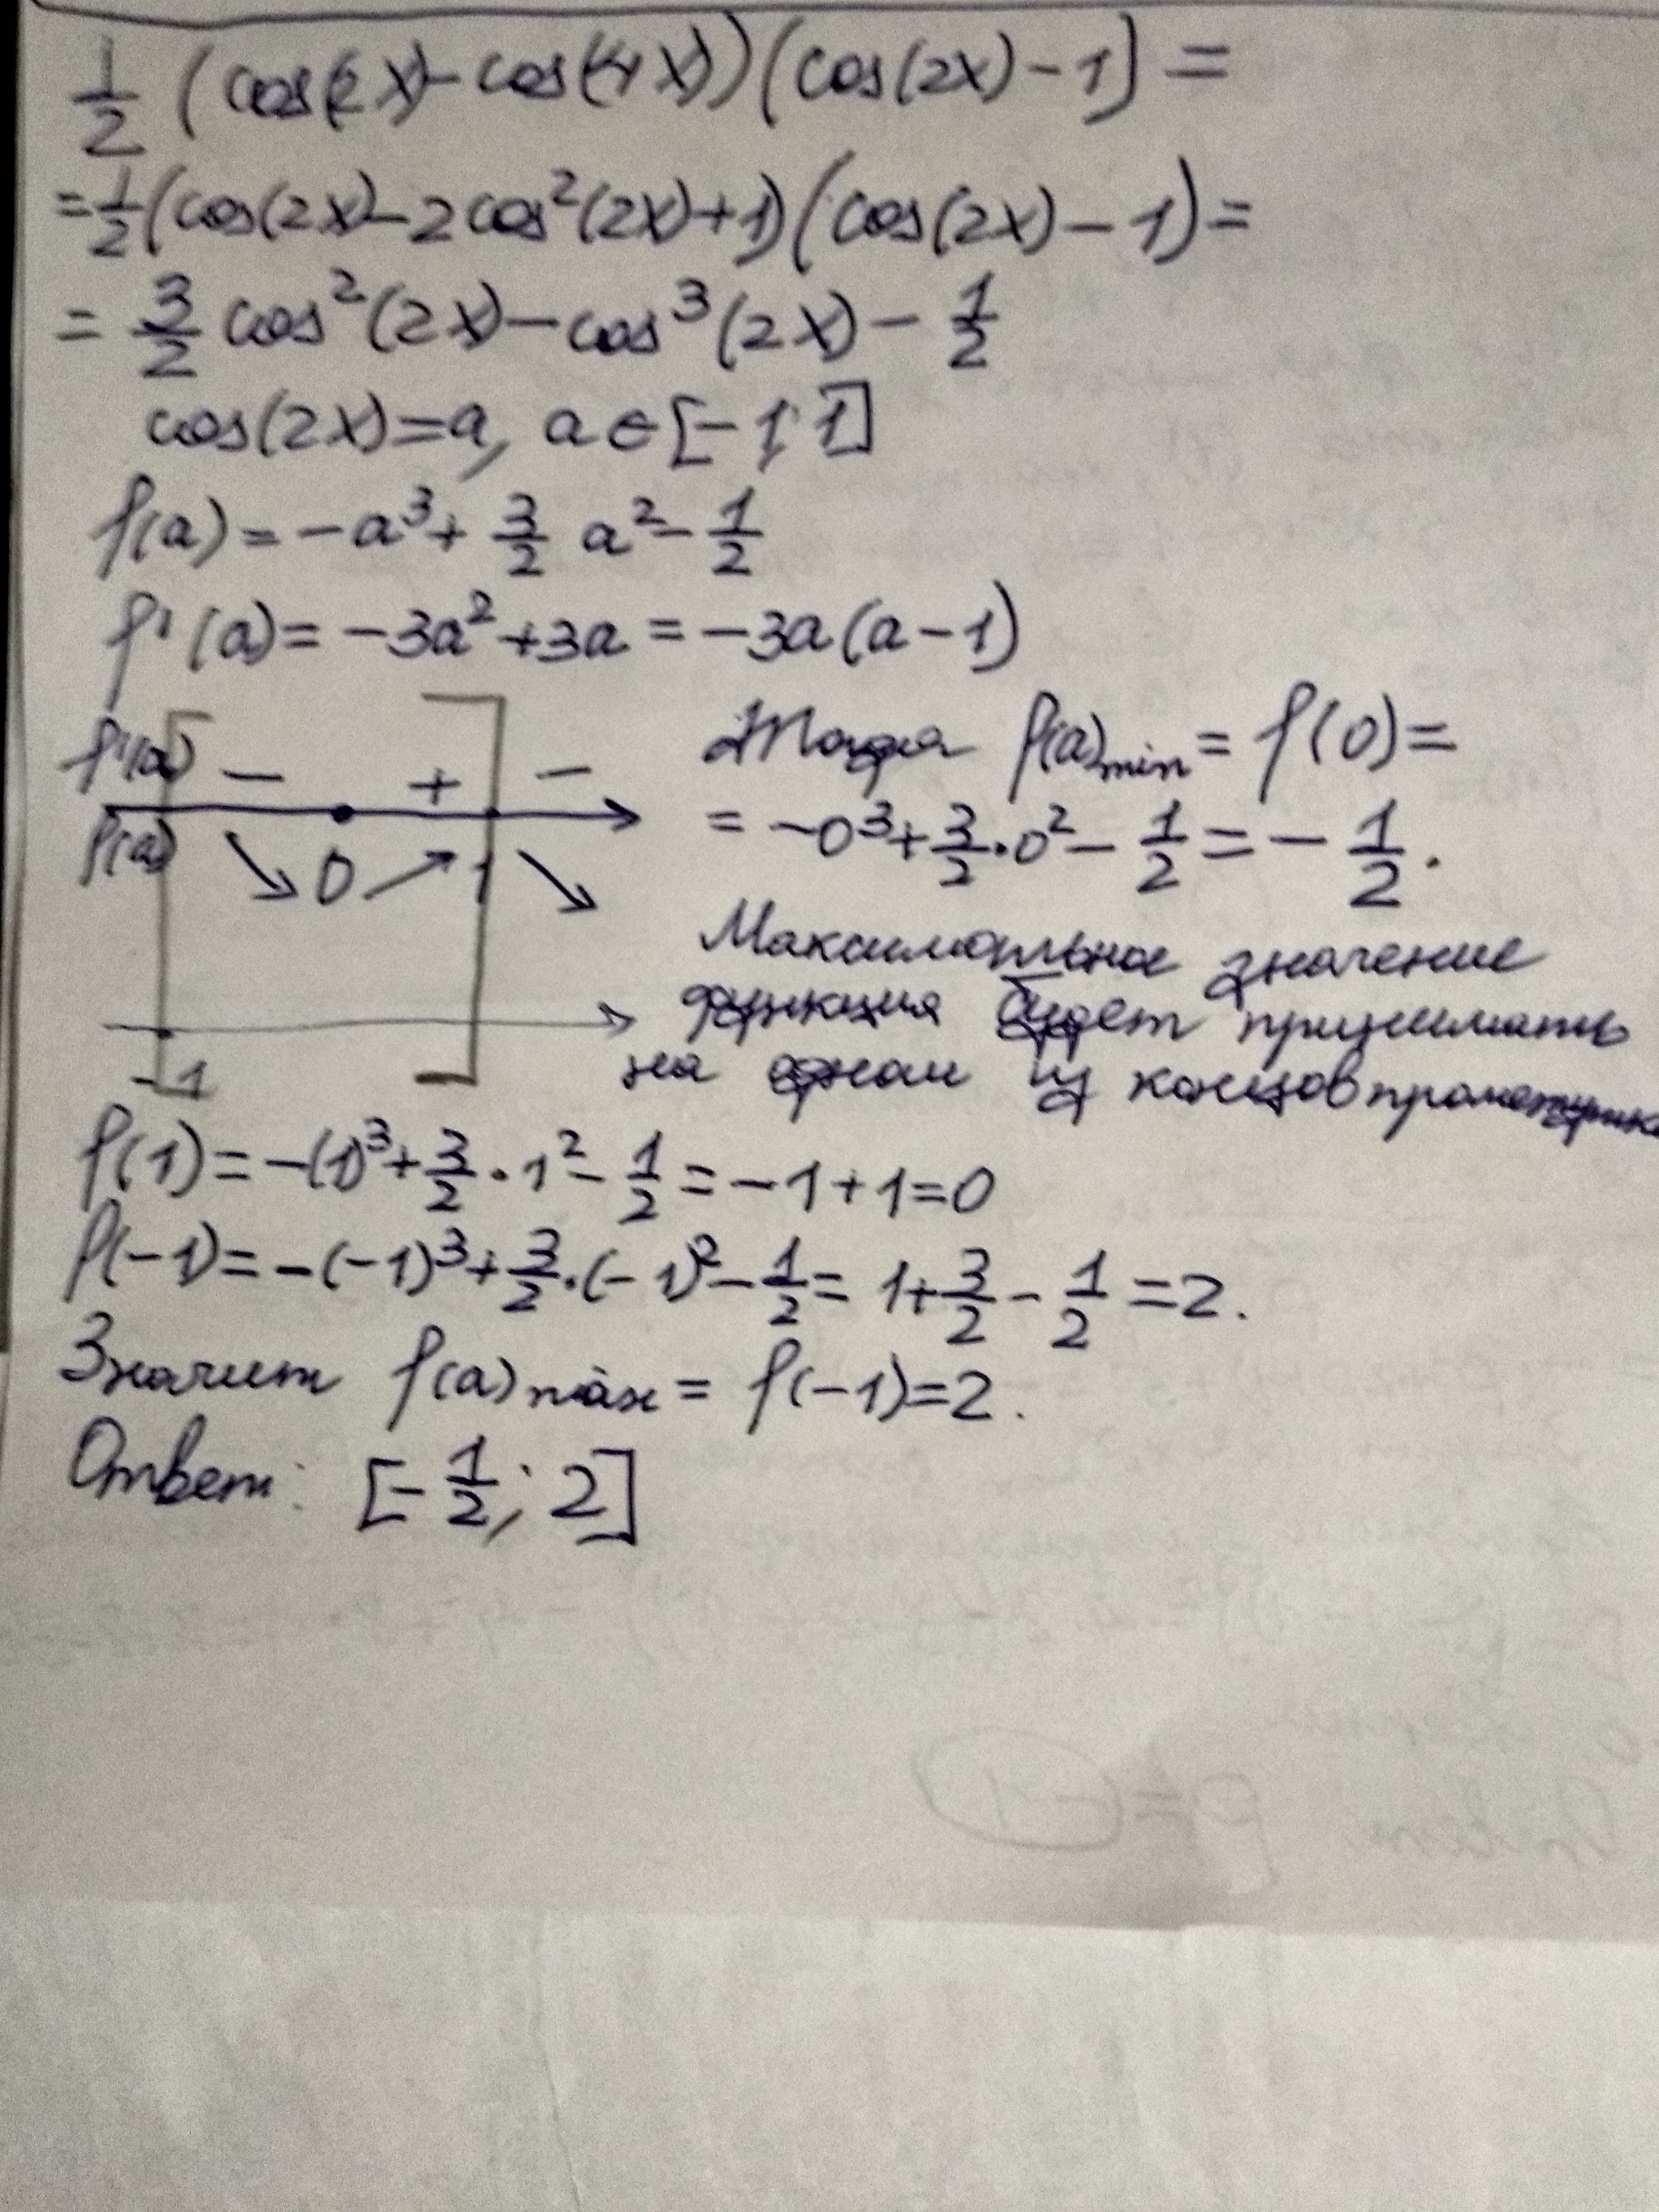 1/2 (cos(2x) - cos(4x))(cos(2x) - 1) =
= 1/2 (cos(2x) - 2cos²(2x) + 1)(cos(2x) - 1) =
= 3/2 cos²(2x) - cos³(2x) - 1/2
cos(2x) = a, a ∈ [-1; 1]
f(a) = -a³ + 3/2 a² - 1/2
f'(a) = -3a² + 3a = -3a(a - 1)
f'(a) - + -
f(a) ↘ 0 ↗ 1 ↘
-1
Тогда f(a)min = f(0) =
= -0³ + 3/2 · 0² - 1/2 = - 1/2.
Максимальное значение
функция будет принимать
на одном из концов промежутка
f(1) = -(1)³ + 3/2 · 1² - 1/2 = -1 + 1 = 0
f(-1) = -(-1)³ + 3/2 · (-1)² - 1/2 = 1 + 3/2 - 1/2 = 2.
Значит f(a)max = f(-1) = 2.
Ответ: [- 1/2; 2]